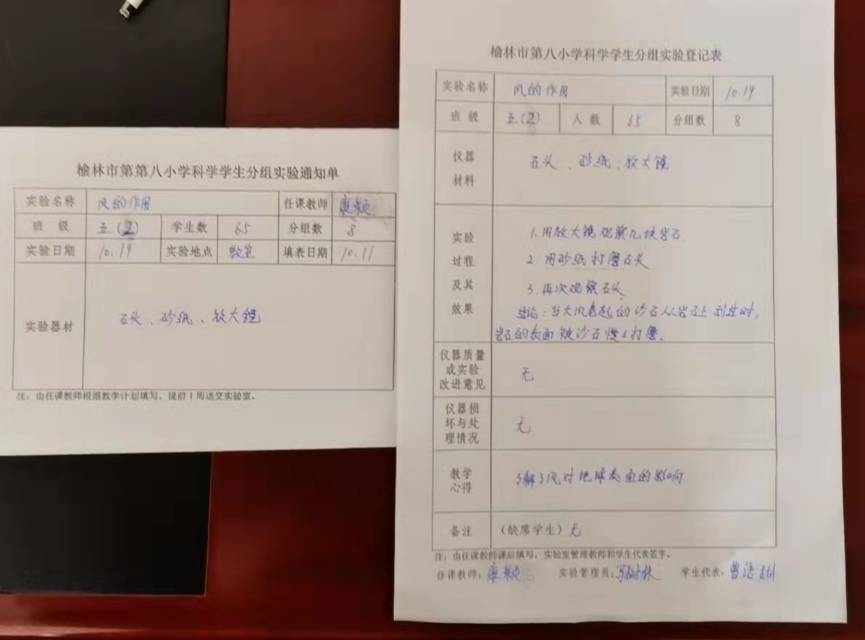 榆林市第第八小学科学学生分组实验通知单
实验名称 风的作用 任课教师
班 级 五(2) 学生数 65 分组数 8
实验日期 10.19 实验地点 教室 填表日期 10.11
实验器材 石头、砂纸、放大镜
注:由任课教师根据教学计划填写,提前1周送交实验室。
榆林市第八小学科学学生分组实验登记表
实验名称 风的作用 实验日期 10.19
班 级 五(2) 人 数 65 分组数 8
仪器
材料
石头、砂纸、放大镜
实验
过程
及其
效果
1.用放大镜观察几块岩石
2.用砂纸打磨石头
3.再次观察石头
结论:当大风卷起的沙石从岩石上刮过时,
岩石的表面被沙石慢慢打磨。
仪器质量
或实验
改进意见
无
仪器损
坏与处
理情况
无
教学
心得
了解了风对地球表面的影响
备注 (缺席学生)无
注:由任课教师课后填写,实验室管理教师和学生代表签字。
任课教师: 实验管理员: 学生代表: